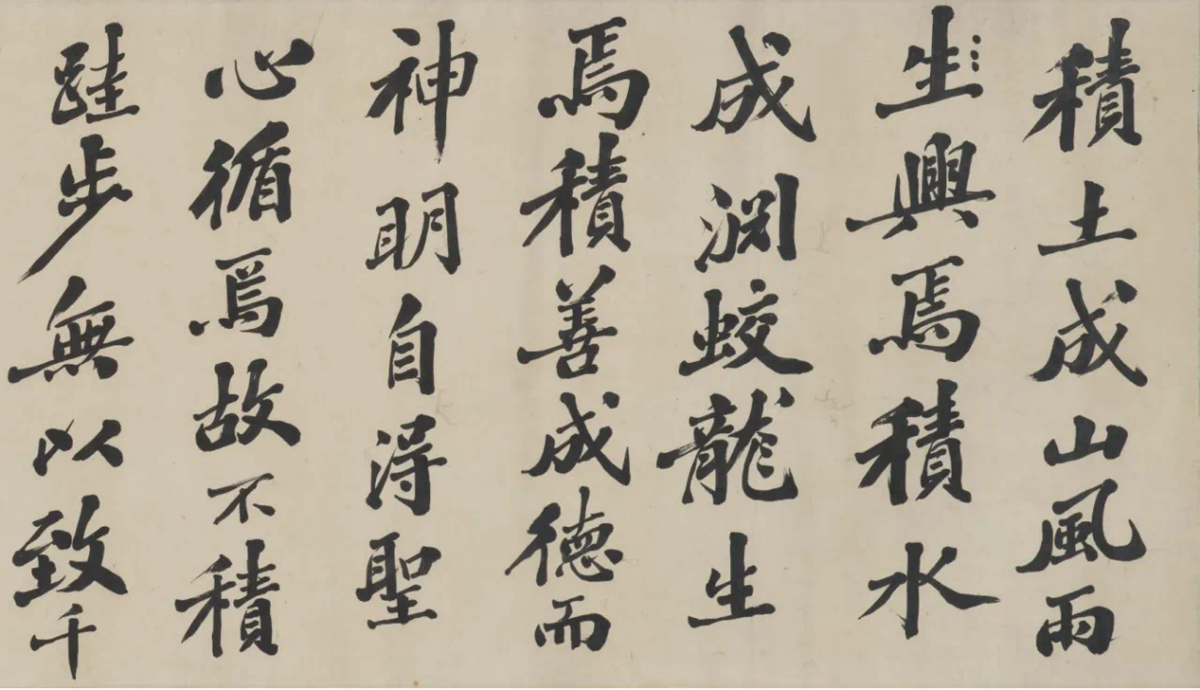 積土成山風雨
生興焉積水
成渊蛟龍生
焉積善成德而
神明自得聖
心循焉故不積
跬步無以致千